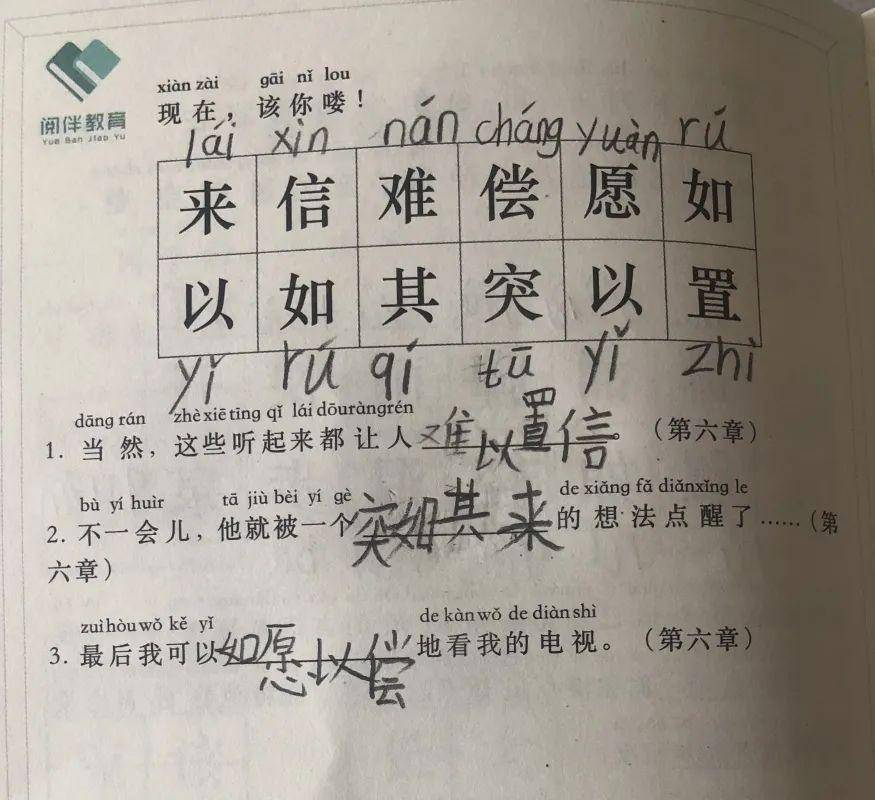 阅伴教育
Yue Ban Jiao Yu
xiàn zài gāi nǐ lou
现在，该你喽！
lái xìn nán cháng yuàn rú
来 信 难 偿 愿 如
以 如 其 突 以 置
yǐ rú qí tū yǐ zhì
dāng rán zhè xiē tīng qǐ lái dōu ràng rén
1. 当然，这些听起来都让人难以置信。（第六章）
bù yí huìr tā jiù bèi yí gè de xiǎng fǎ diǎn xǐng le
2. 不一会儿，他就被一个突如其来的想法点醒了……（第
六章）
zuì hòu wǒ kě yǐ de kàn wǒ de diàn shì
3. 最后我可以如愿以偿地看我的电视。（第六章）